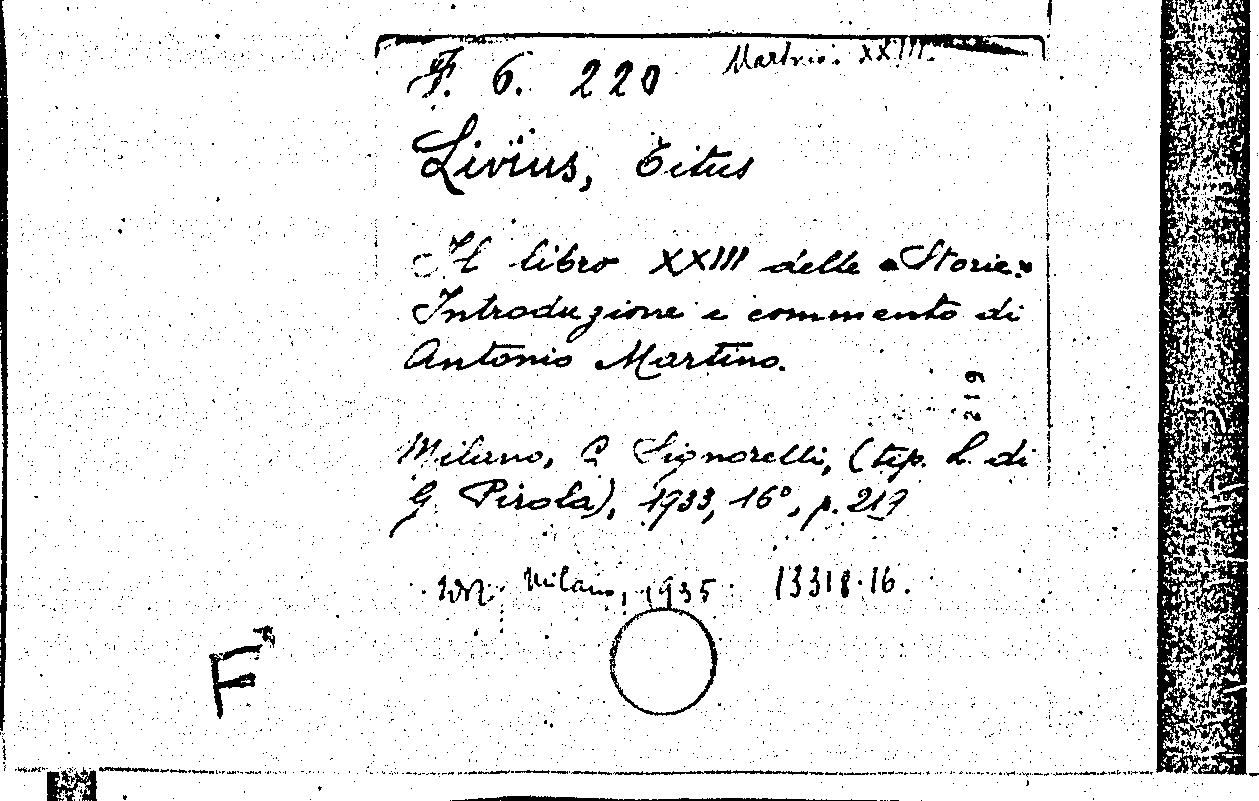 F. 6. 220
Martino. XXIII.
Livius, Titus
Il libro XXIII delle «Storie»
Introduzione e commento di
Antonio Martino.
219
Milano, C. Signorelli, (tip. L. di
G. Pirola), 1933, 16°, p. 219
Milano, 1935. 13318.16.
F